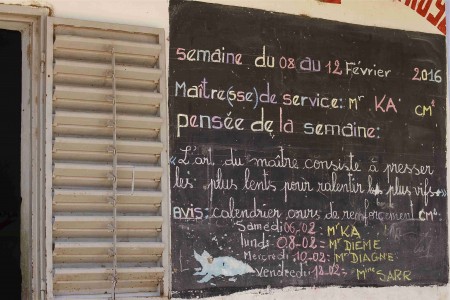 semaine du 08 au 12 Février 2016
Maître(sse) de service: Mr KA CM²
pensée de la semaine:
«L'art du maître consiste à presser
les plus lents pour ralentir les plus vifs»
AVIS: calendrier cours de renforcement CM²
Samedi 06-02: Mr KA
lundi 08-02= Mr DIEME
Mercredi 10-02= Mr DIAGNE
Vendredi 12-02= Mme SARR